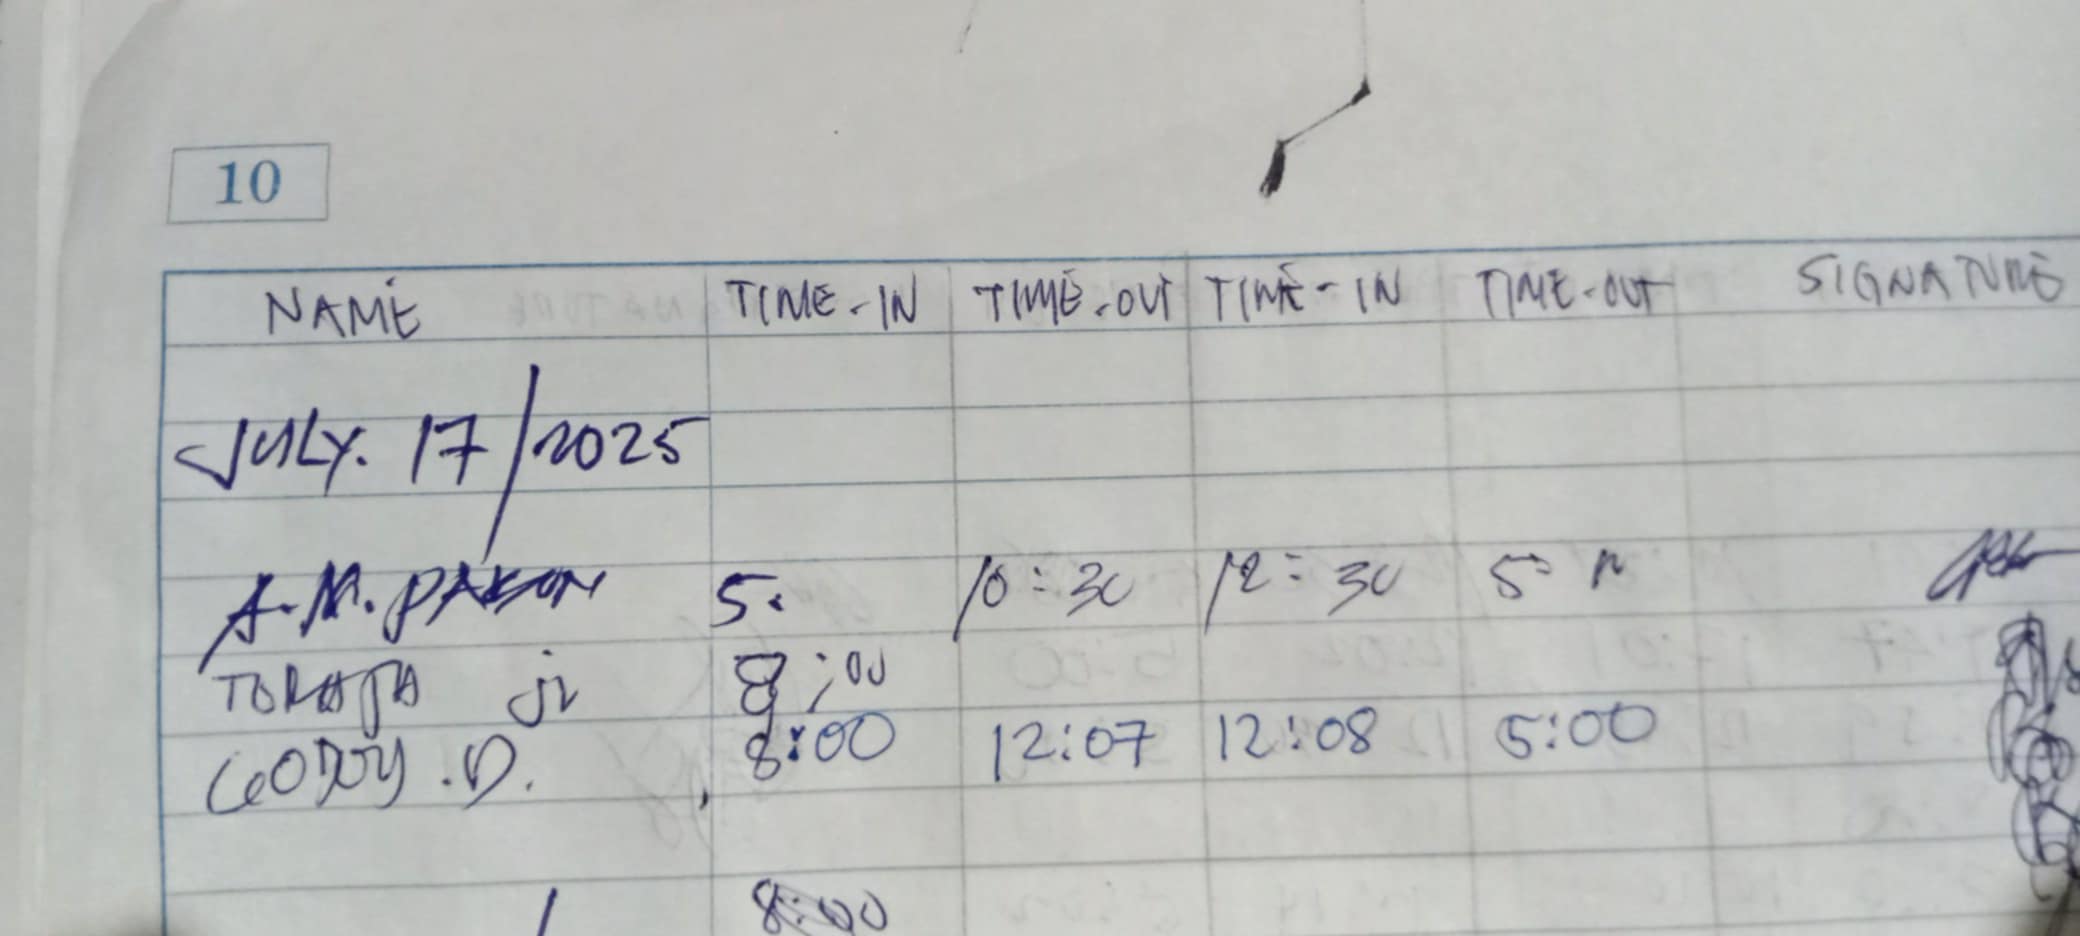 10
NAME TIME-IN TIME-OUT TIME-IN TIME-OUT SIGNATURE
JULY. 17/2025
A.M. 5. 10:30 12:30 5=
jr 8:00
GODOY .D. 8:00 12:07 12:08 5:00
8:00